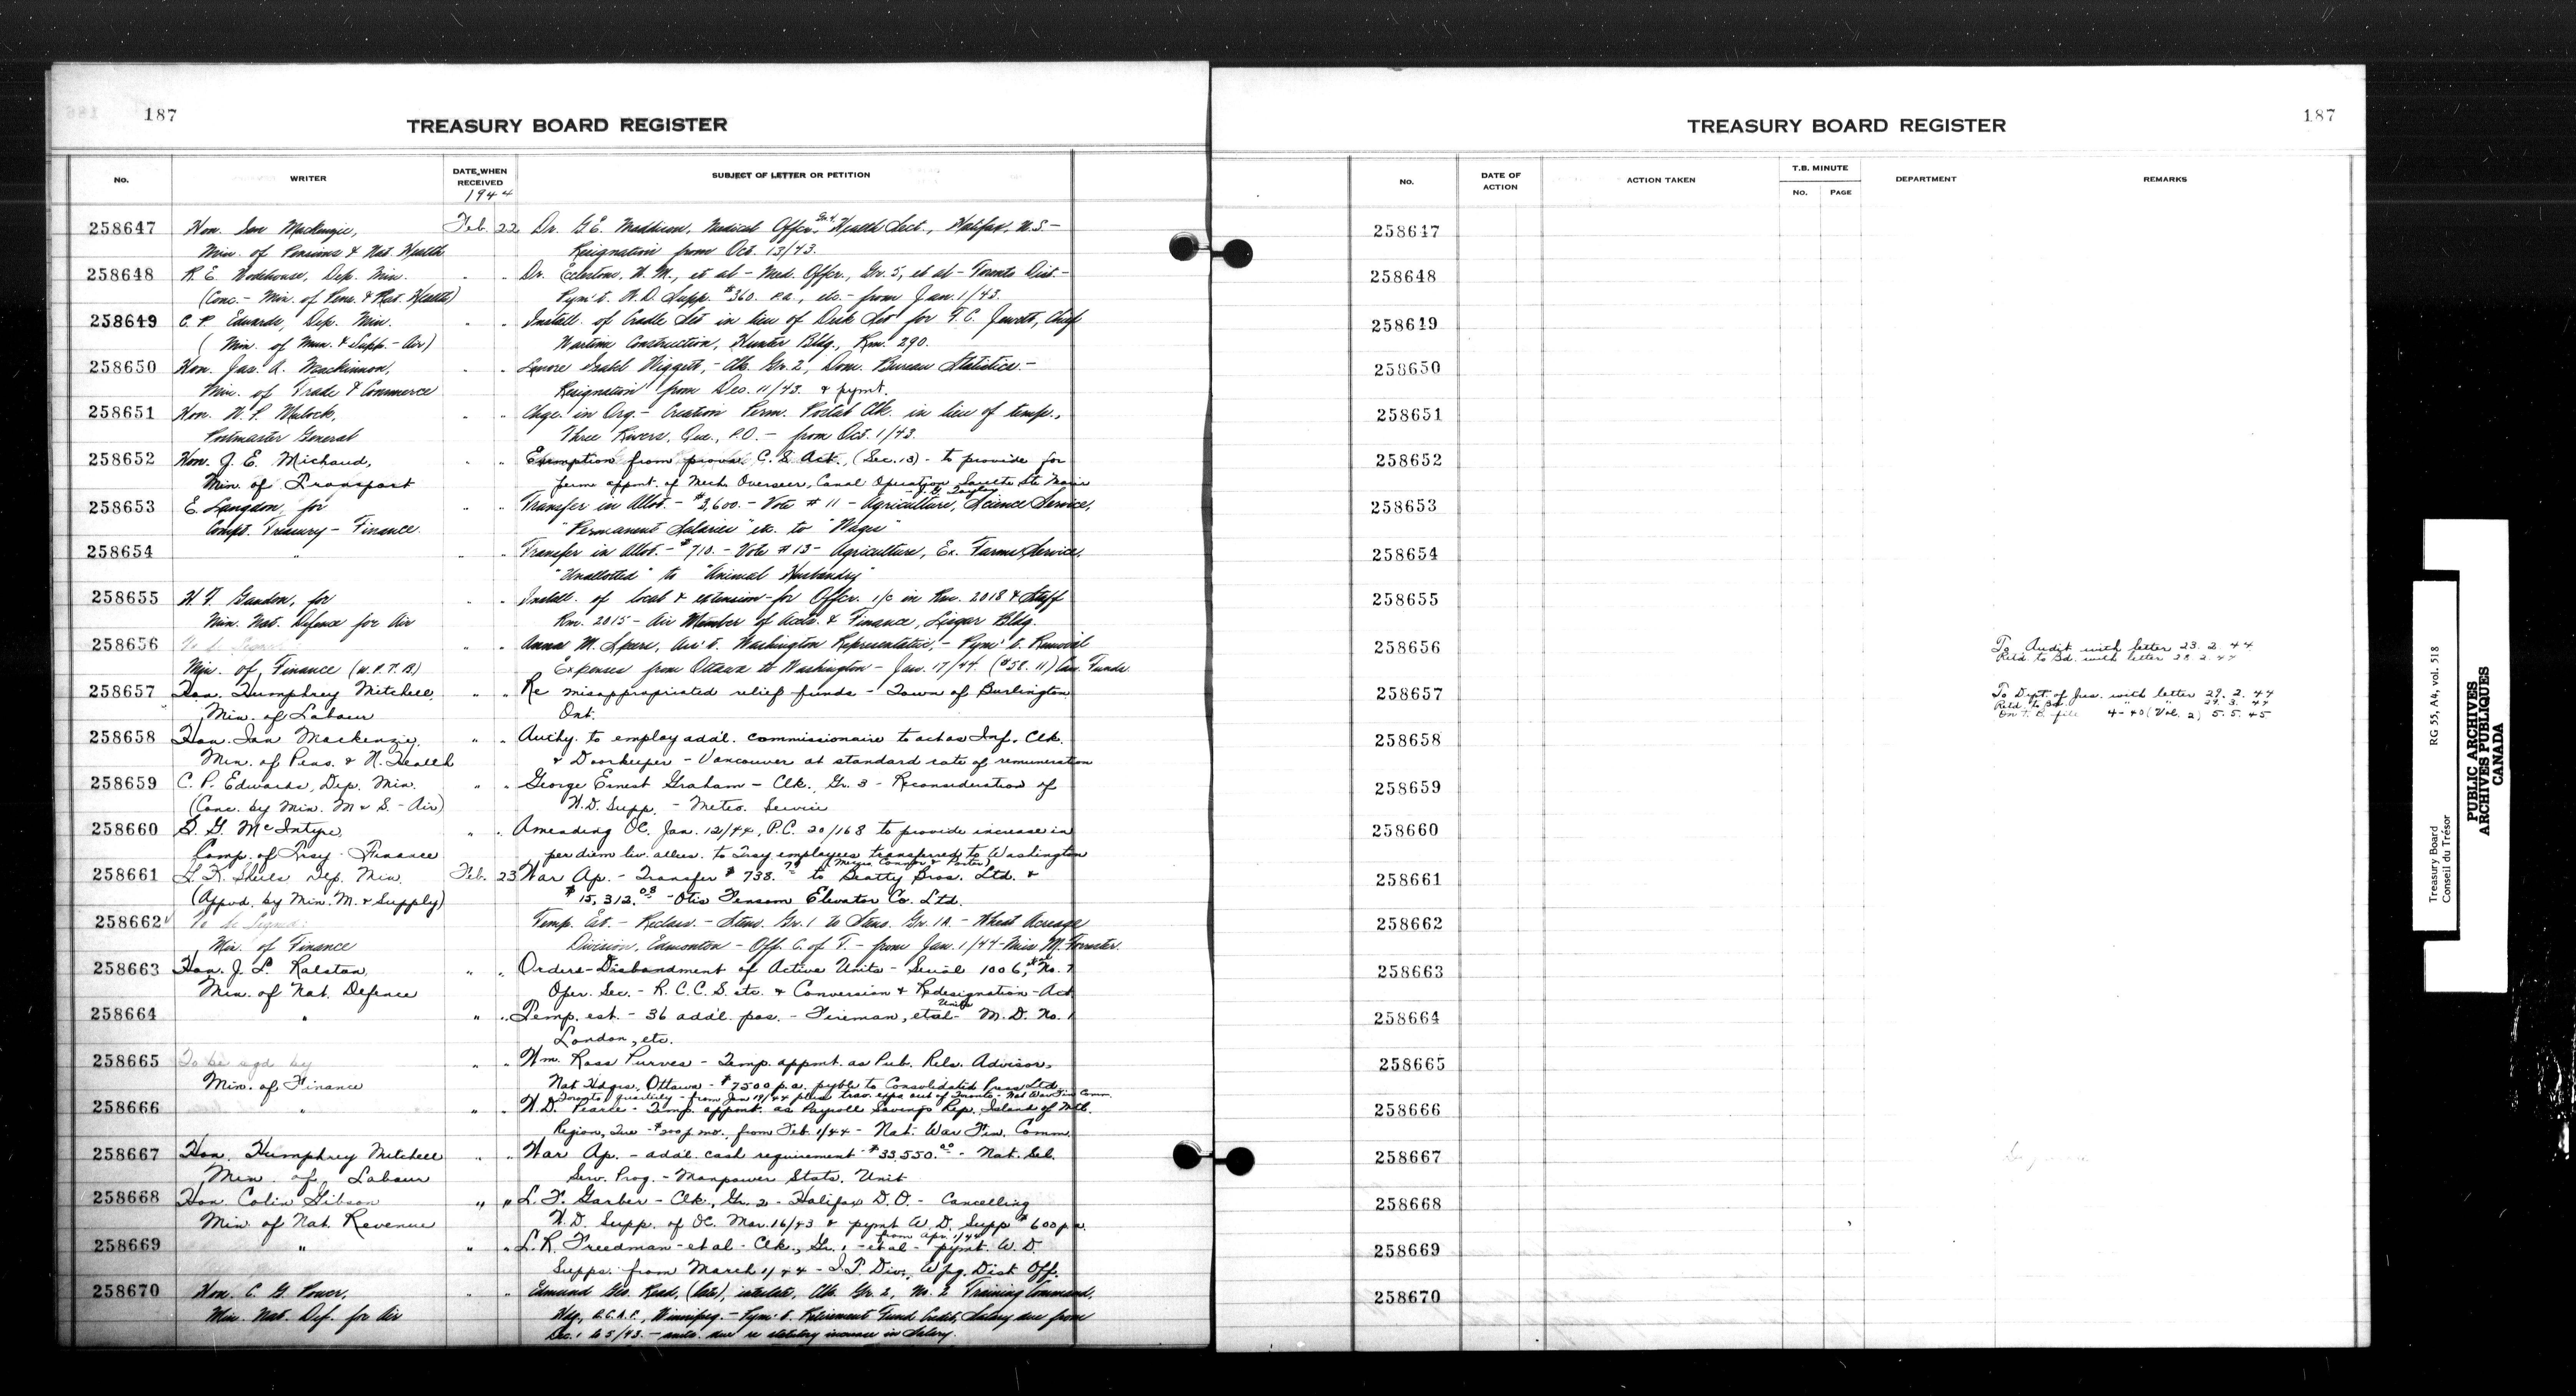 187
TREASURY BOARD REGISTER
No.
WRITER
DATE WHEN RECEIVED
1944
SUBJECT OF LETTER OR PETITION
258647 Hon. Ian Mackenzie, Feb. 22 Dr. G.E. Maddison, Medical Offcr. Gr. 4, Health Sect., Halifax, N.S. -
Min. of Pensions & Nat. Health Resignation from Oct. 13/43.
258648 R. E. Wodehouse, Dep. Min. " " Dr. Eccleston, W. M., et al - Med. Offcr., Gr. 5, et al - Toronto Dist. -
(Conc. - Min. of Pens. & Nat. Health) Pym't. W.D. Supp. $360. p.a., etc. - from Jan. 1/43.
258649 C. P. Edwards, Dep. Min. " " Install. of Cradle Set in lieu of Desk Set for F. C. Jewett, Chief
(Min. of Mun. & Supp. - Air) Wartime Construction, Hunter Bldg., Rm. 290.
258650 Hon. Jas. A. Mackinnon, " " Lenore Isabel Wiggett, - Clk. Gr. 2, Dom. Bureau Statistics -
Min. of Trade & Commerce Resignation from Dec. 11/43. & pymt.
258651 Hon. W. P. Mulock, " " Chge. in Org. - Creation Perm. Postal Clk. in lieu of temp.,
Postmaster General Three Rivers, Que., P.O. - from Oct. 1/43.
258652 Hon. J. E. Michaud, " " Exemption from provs. C. S. Act., (Sec. 13) - to provide for
Min. of Transport perm appmt. of Mech. Overseer, Canal Operation Sault Ste Marie
- J. G. Taylor
258653 E. Langdon, for " " Transfer in Allot. - $3,600. - Vote # 11 - Agriculture, Science Service,
Compt. Treasury - Finance. "Permanent Salaries" etc. to "Wages"
258654 " " " Transfer in Allot. - $710. - Vote # 13 - Agriculture, Ex. Farms Service,
"Unallotted" to "Animal Husbandry"
258655 for " " Install. of local & extension - for Offcr. i/c in Rm. 2018 & Staff
Min. Nat. Defence for Air Rm. 2015 - Air Member of Accts. & Finance, Lisgar Bldg.
258656 To be Signed " " Anna M. Speers, Ass't. Washington Representative, - Pym't. Removal
Min. of Finance (W.P.T.B) Expenses from Ottawa to Washington - Jan. 17/44. ($58.11) Can. Funds.
258657 Hon. Humphrey Mitchell, " " Re misappropriated relief funds - Town of Burlington
Min. of Labour Ont.
258658 Hon. Ian Mackenzie, " " Authy. to employ add'l. commissionaire to act as Inf. Clk.
Min. of Pens. & N. Health & Doorkeeper - Vancouver at standard rate of remuneration
258659 C. P. Edwards, Dep. Min. " " George Ernest Graham - Clk., Gr. 3 - Reconsideration of
(Conc. by Min. M & S. - Air) W.D. Supp. - Meteo. Service
258660 B. G. McIntyre, " " Amending OC. Jan. 12/44, P.C. 20/168 to provide increase in
Comp. of Trsy - Finance per diem liv. allces. to Trsy employees transferred to Washington
(Messrs Connor & Porter)
258661 G. K. Sheils Dep. Min. Feb. 23 War Ap. - Transfer $738.75 to Beatty Bros. Ltd. &
(Appvd. by Min. M. & Supply) $15,312.08 - Otis Fensom Elevator Co. Ltd.
258662 To be Signed Temp. Est. - Reclass. - Steno. Gr. 1 to Steno. Gr. 1A - Wheat Acreage
Min. of Finance Division, Edmonton - Off. C. of T. - from Jan. 1/44 - Miss M. Forrester.
258663 Hon. J. L. Ralston, " " Orders - Disbandment of Active Units - Serial 1006, No. 7
Min. of Nat. Defence Oper. Sec. - R.C.C.S. etc. & Conversion & Redesignation - Act.
Units
258664 " " " Temp. est. - 36 add'l. pos. - Fireman, et al - M.D. No. 1
London, etc.
258665 To be sgd by " " Wm. Ross Purves - Temp. appmt. as Pub. Rels. Advisor,
Min. of Finance Nat Hdqrs. Ottawa - $7500 p.a. pyble to Consolidated Press Ltd.
Toronto quarterly - from Jan 19/44 plus trav. exps out of Toronto - Nat War Fin Comm.
258666 " " " W.D. Pearce - Temp. appmt. as Payroll Savings Rep. Island of Mtl.
Region, Que - $200 p. mo., from Feb. 1/44 - Nat. War Fin. Comm.
258667 Hon. Humphrey Mitchell " " War Ap. - add'l. cash requirement - $33,550.00 - Nat. Sel.
Min. of Labour Serv. Prog. - Manpower Stats. Unit
258668 Hon. Colin Gibson " " L. F. Garber - Clk., Gr. 2 - Halifax D.O. - Cancelling
Min. of Nat. Revenue W.D. Supp. of OC. Mar. 16/43 & pymt W.D. Supp $600 p.a.
from Apr. 1/44
258669 " " " L. R. Freedman - et al - Clk., Gr. 1 - et al - pymt. W.D.
Supps. from March 1/44 - I.T. Div., Wpg. Dist Off.
258670 Hon. C. G. Power, " " Edmund Geo. Read, (late), intestate, Clk. Gr. 2, No. 2 Training Command,
Min. Nat. Def. for Air Hdq., R.C.A.F., Winnipeg. - Pym't. Retirement Fund Credit, Salary due from
Dec. 1 to 5/43. - amts. due re statutory increase in Salary.
TREASURY BOARD REGISTER
187
No.
DATE OF ACTION
ACTION TAKEN
T.B. MINUTE
No.
PAGE
DEPARTMENT
REMARKS
258647
258648
258649
258650
258651
258652
258653
258654
258655
258656 To Audit with letter 23. 2. 44
Retd. to Bd. with letter 28. 2. 44
258657 To Dept. of Jus. with letter 29. 2. 44
Retd. to Bd. " " 29. 3. 44
On T. B. file 4-40 (Vol. 2) 5. 5. 45
258658
258659
258660
258661
258662
258663
258664
258665
258666
258667
258668
258669
258670
Treasury Board
Conseil du Trésor
RG 55, A4, vol. 518
PUBLIC ARCHIVES
ARCHIVES PUBLIQUES
CANADA